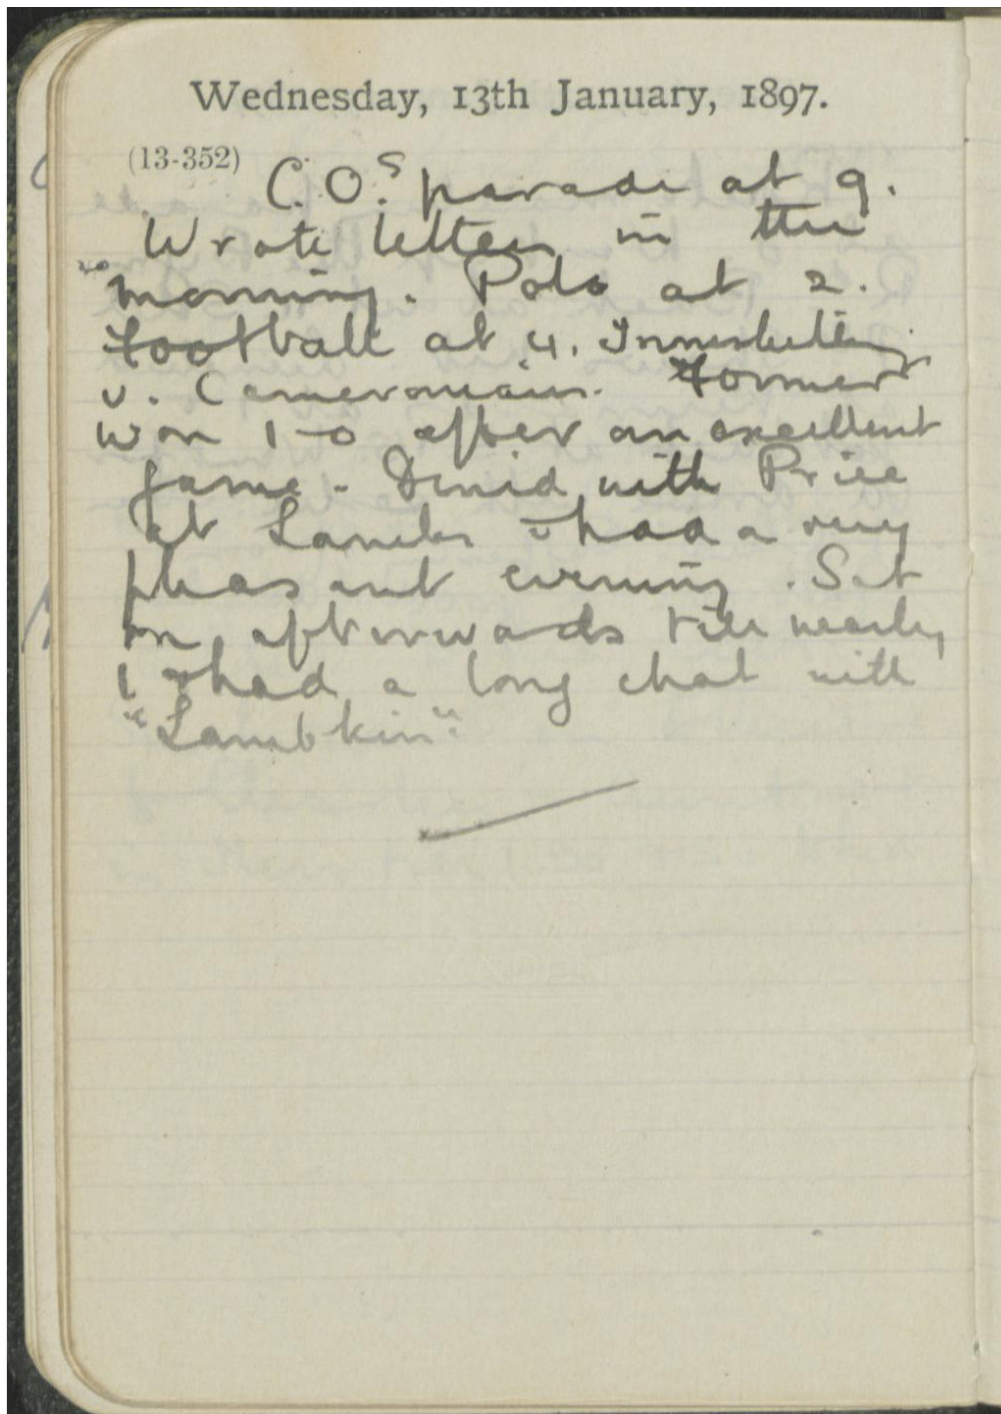 Wednesday, 13th January, 1897.
(13-352)
C.O.s parade at 9.
Wrote letters in the
morning. Polo at 2.
Football at 4. Inniskilling
v. Cameronians. Former
won 1-0 after an excellent
game. Dined with Price
at Lancers & had a very
pleasant evening. Sat
on afterwards till nearly
1 & had a long chat with
"Lambkin".